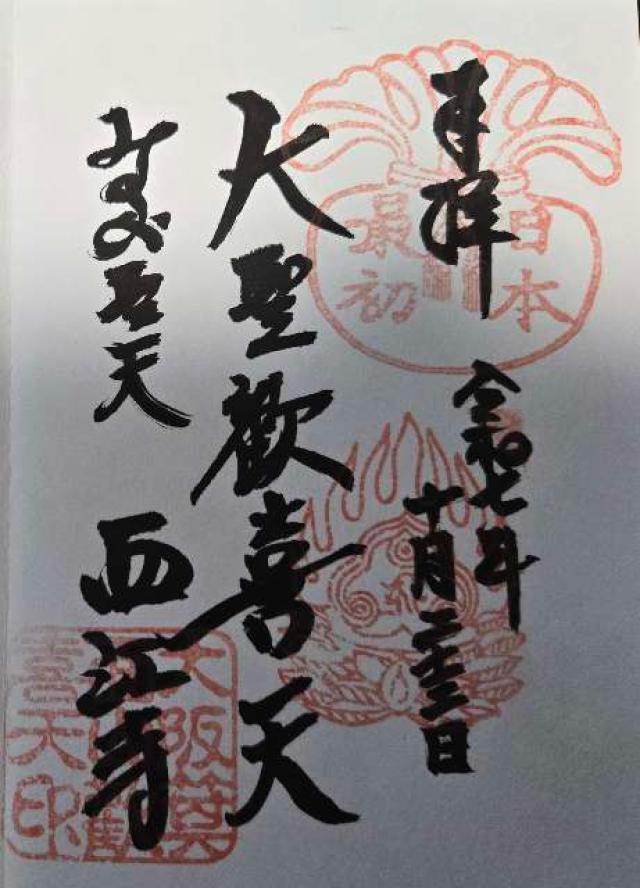 奉拝
日本
最初
令和七年
十月二十三日
大聖歡喜天
みのお聖天
西江寺
大阪箕
面山歡
喜天印